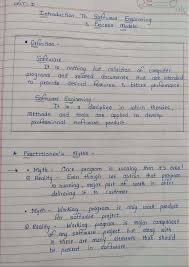 UNIT: I
Introduction To Software Engineering
& Process Models
• Definition -
Software
It is nothing but collection of computer
programs and related documents that are intended
to provide desired features & better performance
Software Engineering
It is a discipline in which theories,
Methods and tools are applied to develop
professional software product.
Practitioner's Myths -
Myth - Once program is working then it's over!
Reality - Even though we obtain that program
is running, major part of work is after
delivering it to customer
Myth - Working program is only work product
for software project.
Reality - Working program is major component
of any software project but along with
it there are many elements that should
be present in software.